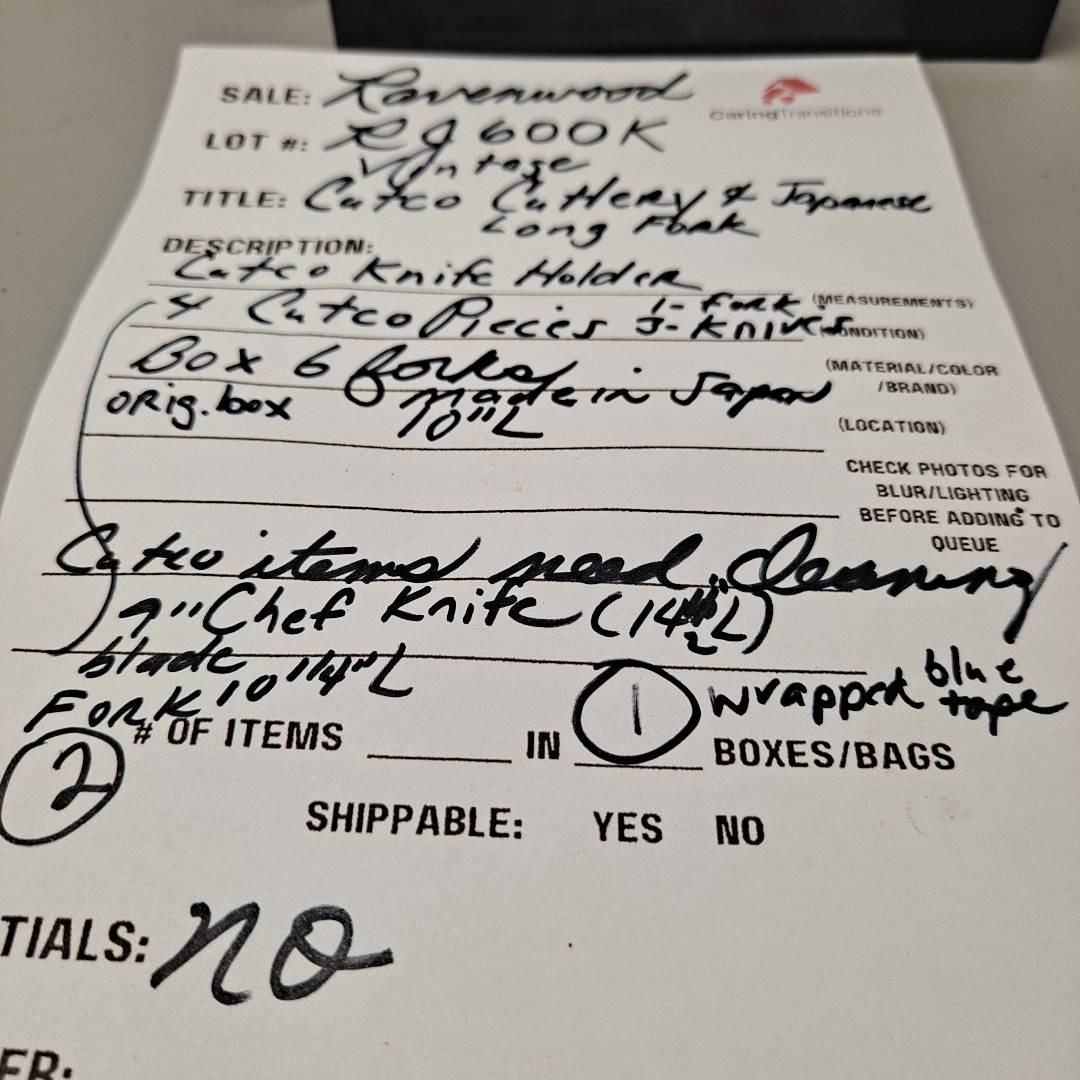 SALE: Ravenwood
CaringTransitions
LOT #: RJ600K
Vintage
TITLE: Cutco Cutlery & Japanese
Long Fork
DESCRIPTION:
Cutco Knife Holder
4 Cutco Pieces 1- Fork (MEASUREMENTS)
3- Knives (CONDITION)
Box 6 forks (MATERIAL/COLOR
made in Japan /BRAND)
orig. box 10"L (LOCATION)
CHECK PHOTOS FOR
BLUR/LIGHTING
BEFORE ADDING TO
QUEUE
Cutco items need cleaning
9" Chef Knife (14 1/2"L)
blade
Fork 10 1/4"L
wrapped blue
tape
# OF ITEMS IN 1 BOXES/BAGS
2
SHIPPABLE: YES NO
TIALS: no
ER: